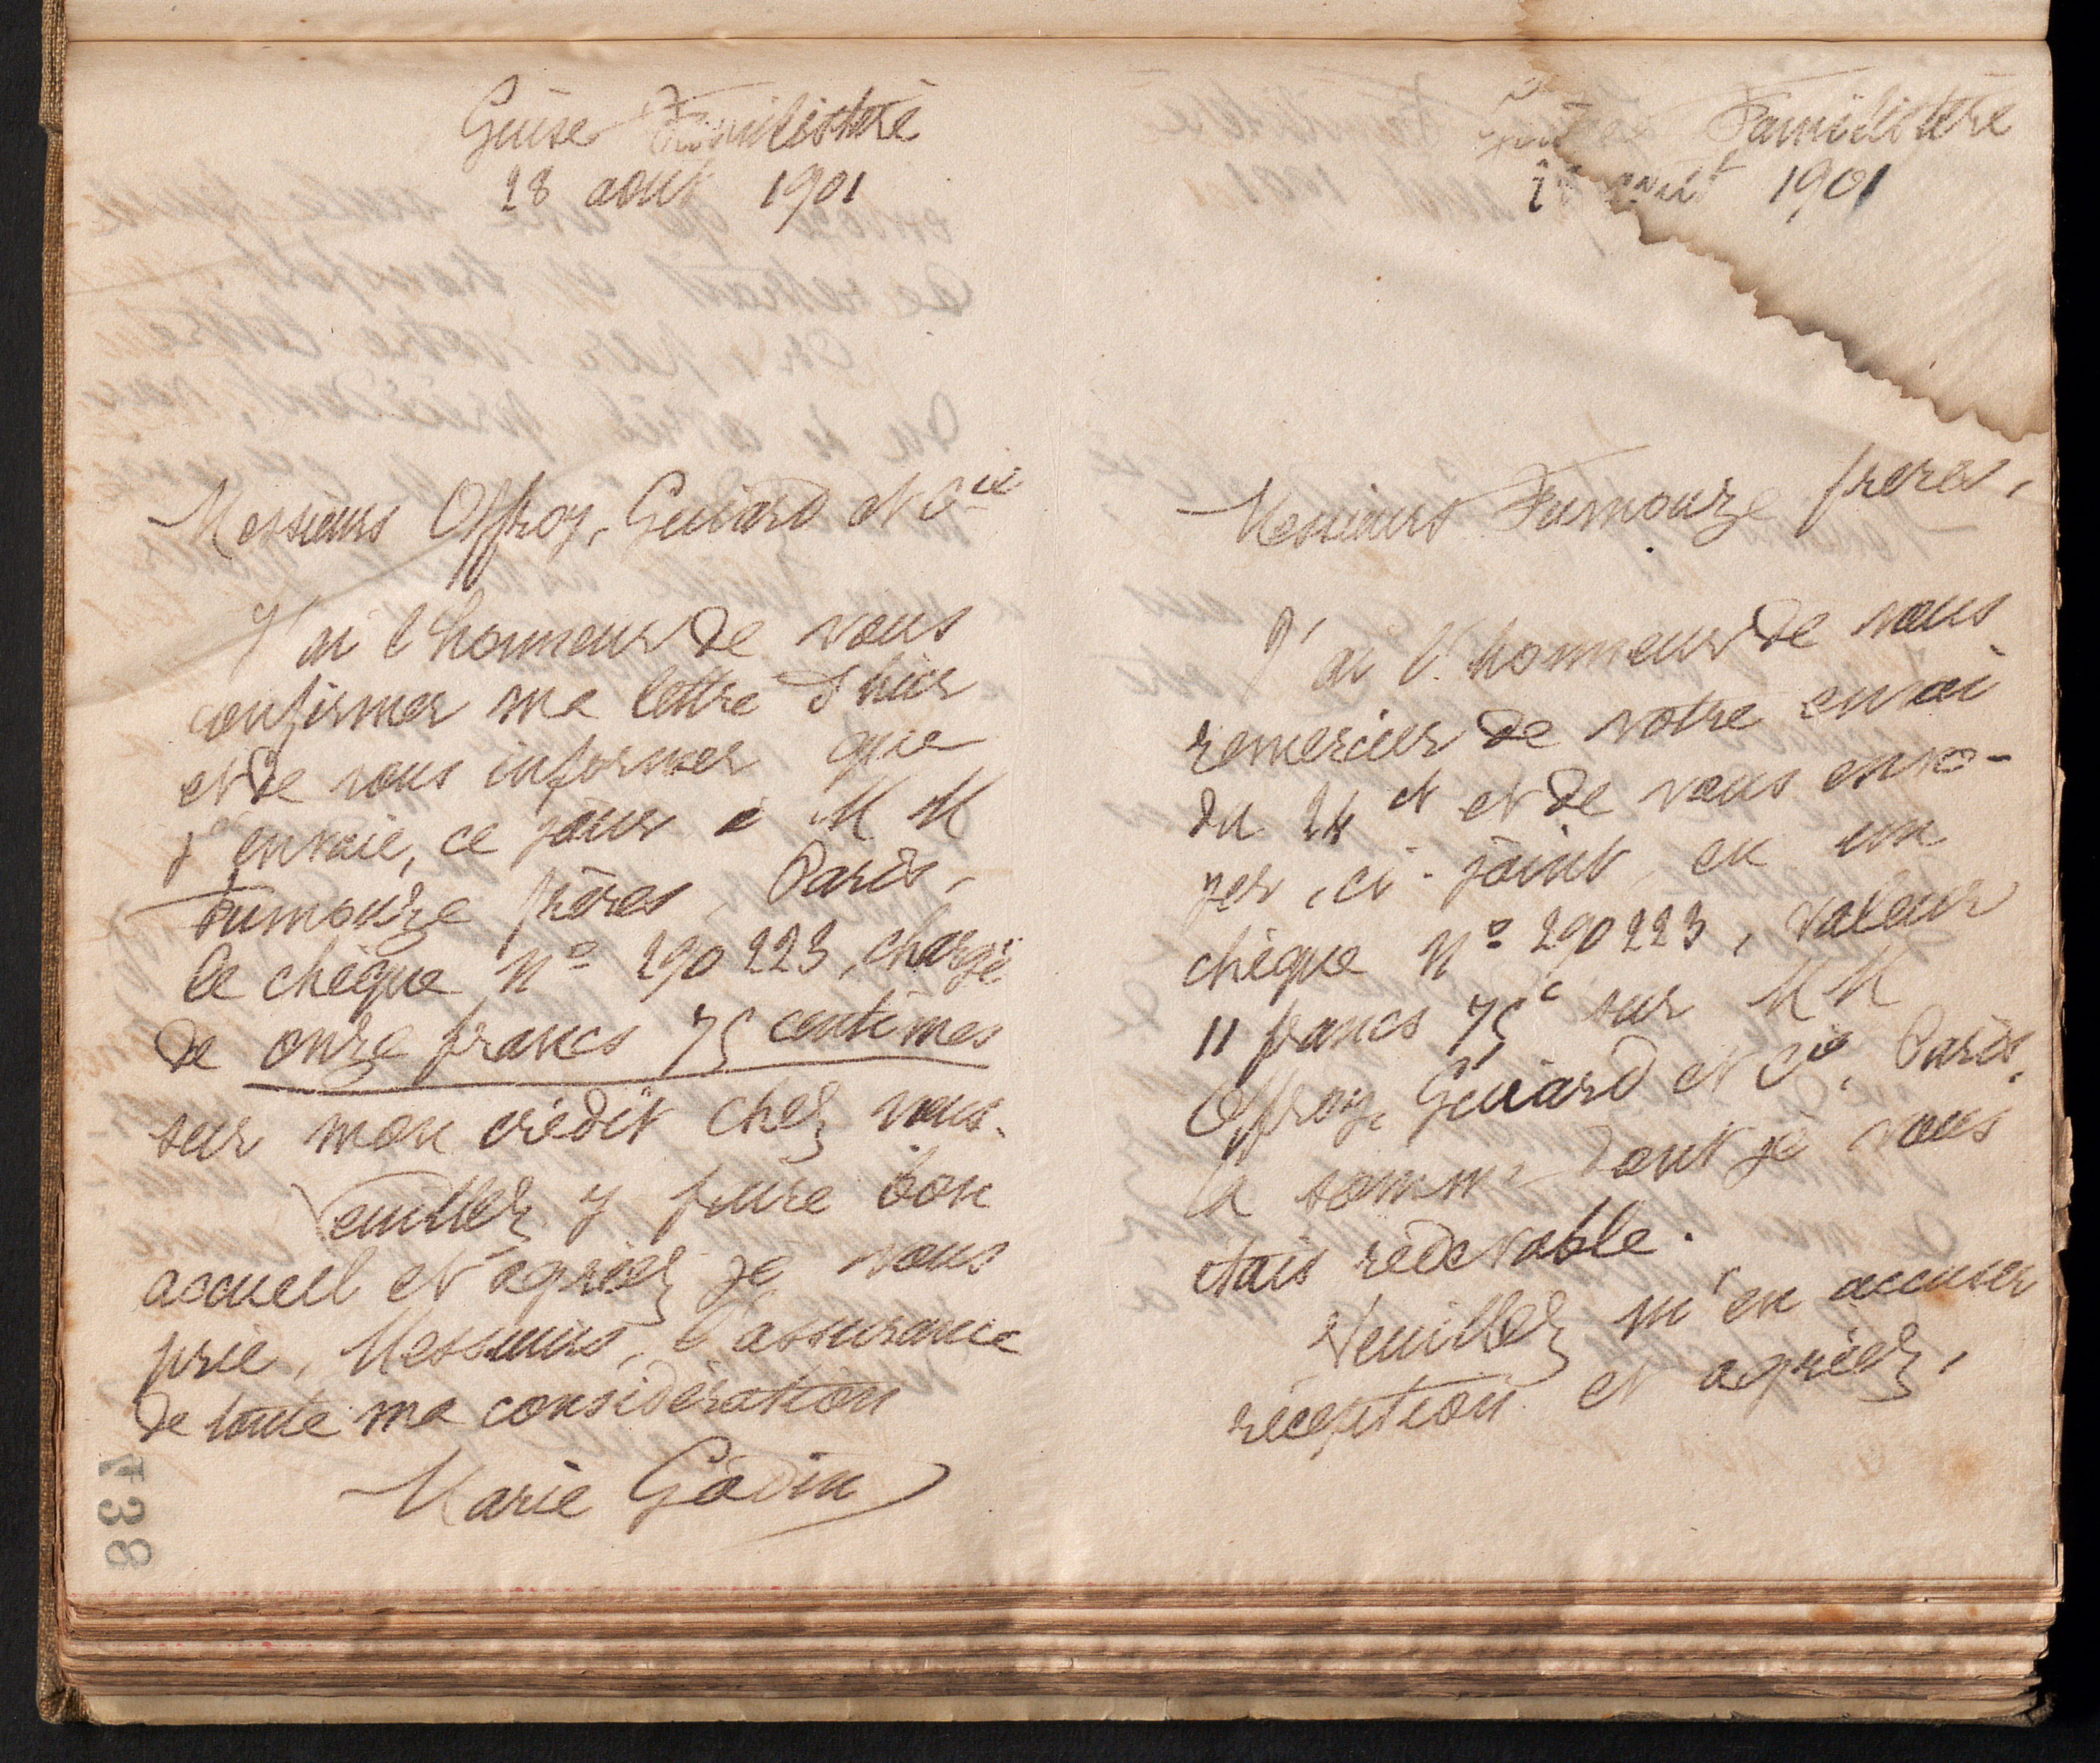 Guise Familistère
28 août 1901
Messieurs Offroy, Guiard et Cie
J'ai l'honneur de vous
confirmer ma lettre d'hier
et de vous informer que
j'envoie, ce jour à MM
Fumouze frères, Paris,
le chèque No 290 223, chargé
de onze francs 75 centimes
sur mon crédit chez vous.
Veuillez y faire bon
accueil et agréez je vous
prie, Messieurs, l'assurance
de toute ma considération
Marie Godin
438
Guise Familistère
28 août 1901
Messieurs Fumouze frères,
J'ai l'honneur de vous
remercier de votre envoi
du 24 ct et de vous envo-
yer, ci-joint, en un
chèque No 290 223, valeur
11 francs 75c sur MM
Offroy, Guiard et Cie, Paris,
la somme dont je vous
étais redevable.
Veuillez m'en accuser
réception et agréez,